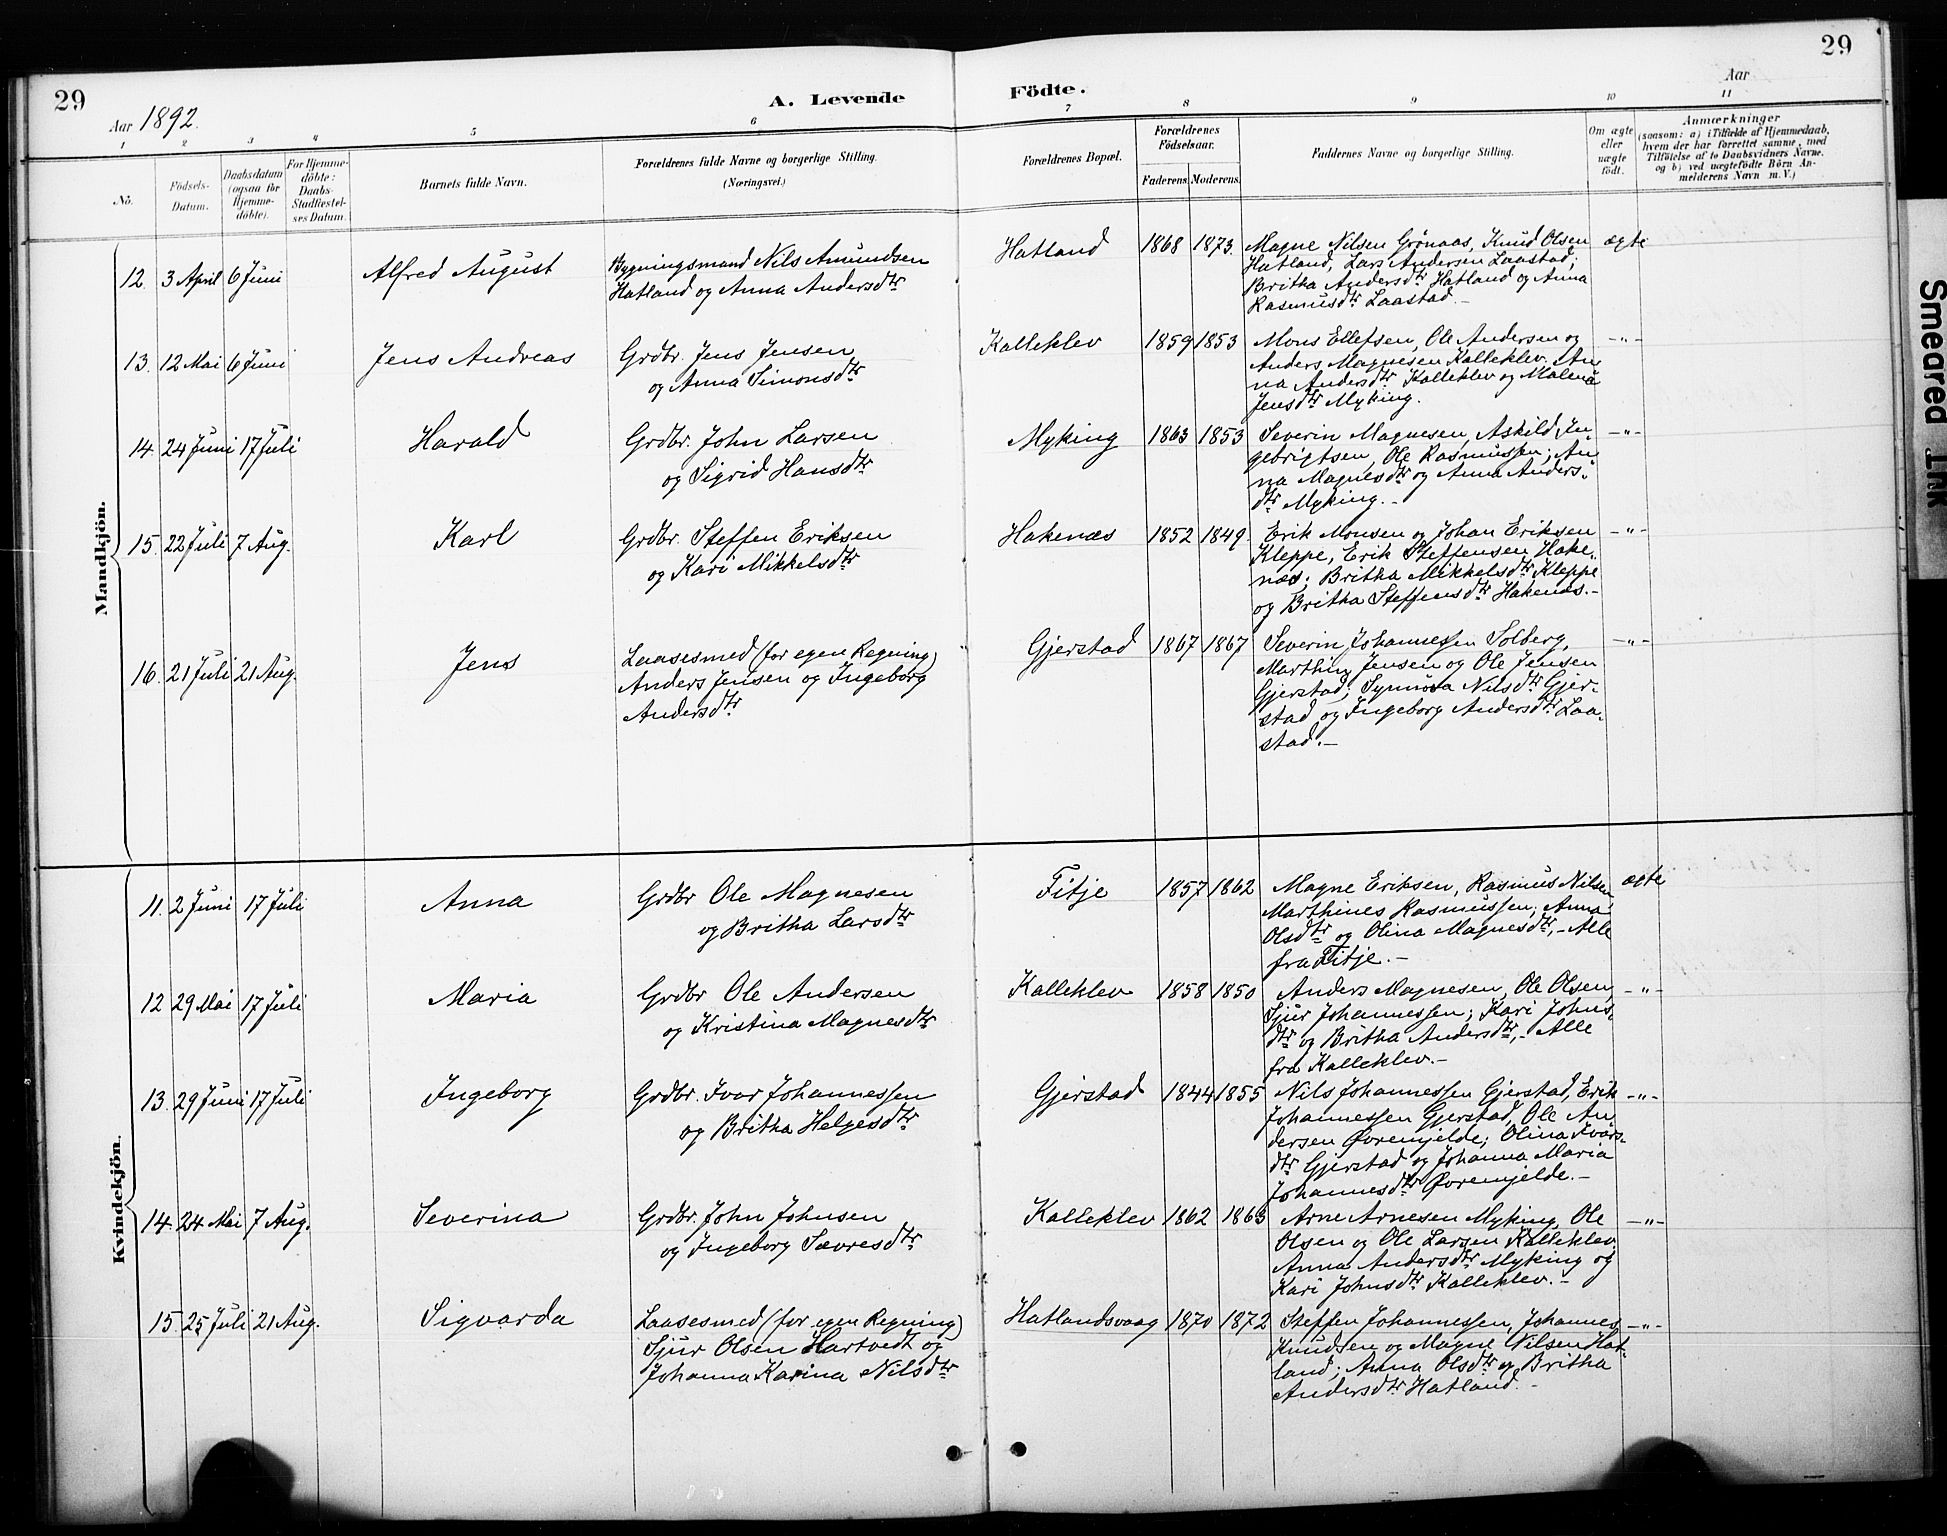 29
29
Aar 1892.
A. Levende
Födte.
Aar
1
2
3
4
5
6
7
8
9
10
11
No.
Fødsels-
Datum.
Daabsdatum
(ogsaa for
Hjemme-
döbte).
For Hjemme-
döbte:
Daabs-
Stadfæstel-
ses Datum.
Barnets fulde Navn.
Forældrenes fulde Navne og borgerlige Stilling.
(Næringsvei.)
Forældrenes Bopæl.
Forældrenes
Födselsaar.
Faderens.
Moderens.
Faddernes Navne og borgerlige Stilling.
Om ægte
eller
uægte
født.
Anmærkninger
(saasom: a) i Tilfælde af Hjemmedaab,
hvem der har forrettet samme, med
Tilföielse af to Daabsvidners Navne.
og b) ved uægtefödte Börn An-
melderens Navn m. V.)
Mandkjön.
12. 3 April 6 Juni Alfred August
Bygningsmand Nils Amundsen
Hatland og Anna Andersdtr
Hatland 1868 1873.
Magne Nilsen Grønaas, Knud Olsen
Hatland, Lars Andersen Laastad;
Britha Andersdtr Hatland og Anna
Rasmusdtr Laastad.-
ægte
13. 12 Mai 6 Juni Jens Andreas
Grdbr. Jens Jensen
og Anna Simonsdtr
Kalleklev 1859 1853
Mons Ellefsen, Ole Andersen og
Anders Magnesen Kalleklev. An-
na Andersdtr Kalleklev og Malena
Jensdtr Myking.
-"-
14. 24 Juni 17 Juli Harald
Grdbr. John Larsen
og Sigrid Hansdtr
Myking 1863 1853
Severin Magnesen, Askild In-
gebrigtsen, Ole Rasmussen; An-
na Magnesdtr og Anna Anders-
dtr Myking.-
-"-
15. 22 Juli 7 Aug. Karl
Grdbr. Steffen Eriksen
og Kari Mikkelsdtr
Hakenæs 1852 1849.
Erik Monsen og Johan Eriksen
Kleppe, Erik Steffensen Hake-
næs; Britha Mikkelsdtr Kleppe
og Britha Steffensdtr Hakenæs.-
-"-
16. 21 Juli 21 Aug. Jens
Laasesmed (for egen Regning)
Anders Jensen og Ingeborg
Andersdtr
Gjerstad 1867 1867
Severin Johannessen Solberg,
Marthin Jensen og Ole Jensen
Gjerstad; Synnøva Nilsdtr Gjer-
stad og Ingeborg Andersdtr Laa-
stad.-
-"-
Kvindekjön.
11. 2 Juni 17 Juli Anna
Grdbr Ole Magnesen
og Britha Larsdtr
Fitje 1857 1862
Magne Eriksen, Rasmus Nilsen
Marthines Rasmussen; Anna
Olsdtr og Olina Magnesdtr, - Alle
fra Fitje.-
ægte
12 29 Mai 17 Juli Maria
Grdbr Ole Andersen
og Kristina Magnesdtr
Kalleklev 1858 1850
Anders Magnesen, Ole Olsen,
Sjur Johannessen; Kari Johns-
dtr og Britha Andersdtr, - Alle
fra Kalleklev.-
-"-
13. 29 Juni 17 Juli Ingeborg
Grdbr. Ivar Johannessen
og Britha Helgesdtr
Gjerstad 1844 1855
Nils Johannessen Gjerstad, Erik
Johannessen Gjerstad, Ole An
dersen Øvremjelde; Olina Ivars-
dtr Gjerstad og Johanna Maria
Johannesdtr Øvremjelde.-
-"-
14. 24 Mai 7 Aug. Severina
Grdbr. John Johnsen
og Ingeborg Sævresdtr
Kalleklev 1862 1863
Arne Arnesen Myking, Ole
Olsen og Ole Larsen Kalleklev,
Anna Andersdtr Myking og
Kari Johnsdtr Kalleklev.-
-"-
15. 25 Juli 21 Aug. Sigvarda
Laasesmed (for egen Regning)
Sjur Olsen Hartvedt og
Johanna Karina Nilsdtr
Hatlandsvaag 1870 1872
Steffen Johannessen, Johannes
Knudsen og Magne Nilsen Hat-
land; Anna Olsdtr og Britha
Andersdtr Hatland.-
-"-
Smeared Ink